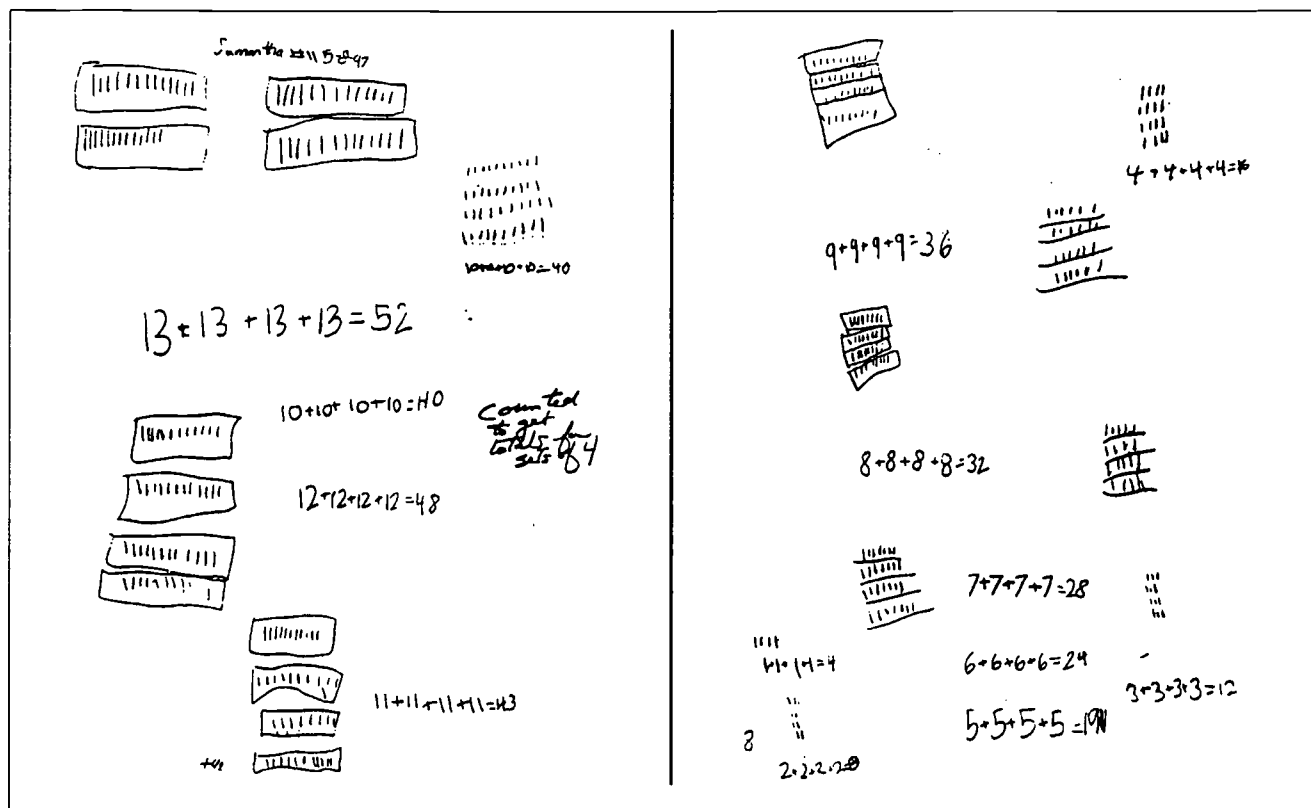 Samantha
10+10+10+10=40
13+13+13+13=52
10+10+10+10=40
Counted
to get
totals for
sets of 4
12+12+12+12=48
11+11+11+11=43
4+4+4+4=16
9+9+9+9=36
8+8+8+8=32
7+7+7+7=28
1+1+1+1=4
6+6+6+6=24
3+3+3+3=12
5+5+5+5=19
8
2+2+2+2=8